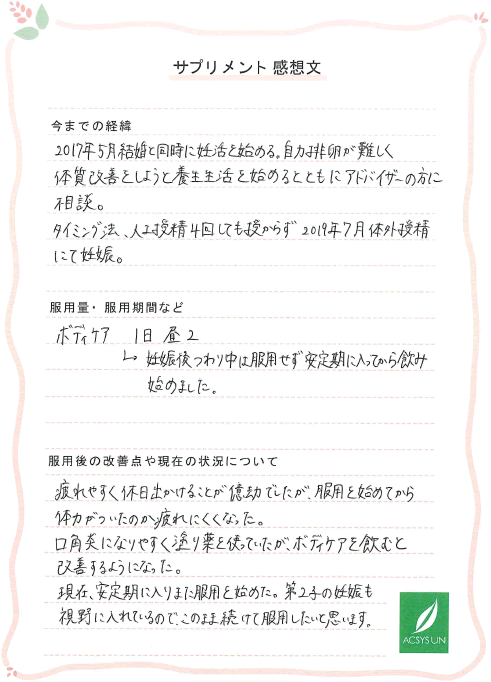 サプリメント 感想文
今までの経緯
2017年5月結婚と同時に妊活を始める。自力排卵が難しく
体質改善をしようと養生生活を始めるとともにアドバイザーの方に
相談。
タイミング法、人工授精4回しても授からず 2019年7月体外授精
にて妊娠。
服用量・服用期間など
ボディケア 1日 昼2
↳ 妊娠後つわり中は服用せず安定期に入ってから飲み
始めました。
服用後の改善点や現在の状況について
疲れやすく休日出かけることが億劫でしたが、服用を始めてから
体力がついたのか疲れにくくなった。
口角炎になりやすく塗り薬を使っていたが、ボディケアを飲むと
改善するようになった。
現在、安定期に入りまた服用を始めた。第2子の妊娠も
視野に入れているので、このまま続けて服用したいと思います。
ACSYSUN